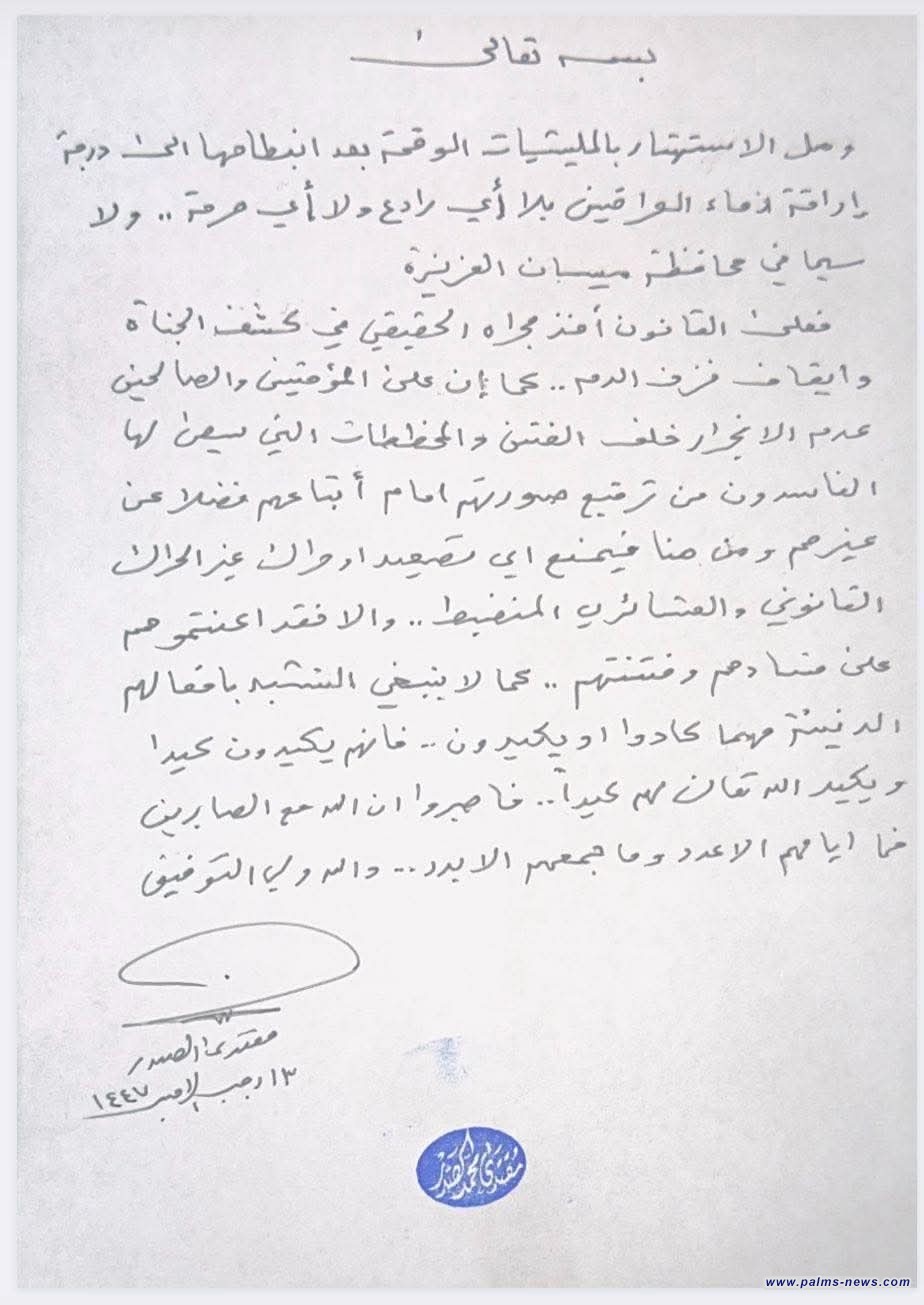 بسمه تعالى
وصل الاستهتار بالمليشيات الوقحة بعد انبطاحها الى درجة
إراقة دماء العراقيين بلا أي رادع ولا أي حرمة .. ولا
سيما في محافظة ميسان العزيزة
فعلى القانون أخذ مجراه الحقيقي في كشف الجناة
وايقاف نزف الدم .. كما إن على المؤمنين والصالحين
عدم الانجرار خلف الفتن والمخططات التي يسعى لها
الفاسدون من ترقيع صورتهم امام أتباعهم فضلا عن
غيرهم ومن هنا فيمنع اي تصعيد او حراك غير الحراك
القانوني والعشائري المنضبط .. والا فقد اعنتموهم
على فسادهم وفتنتهم .. كما لا ينبغي التشبه بافعالهم
الدنيئة مهما كادوا او يكيدون .. فانهم يكيدون كيدا
ويكيد الله تعالى لهم كيداً .. فاصبروا ان الله مع الصابرين
فما ايامهم الا عدد وما جمعهم الا بدد .. والله ولي التوفيق
مقتدى الصدر
١٣ رجب الاصب ١٤٤٧
مقتدى محمد الصدر
www.palms-news.com